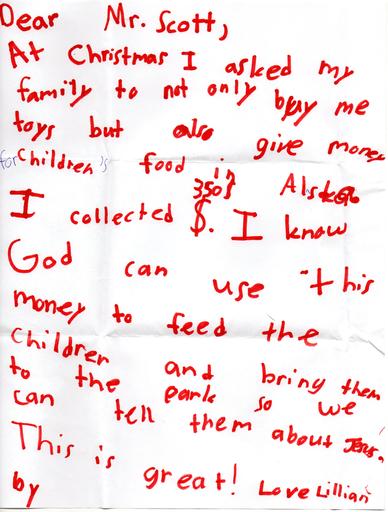 Dear Mr. Scott,
At Christmas I asked my
family to not only buy me
toys but also give money
for Children's food in Alsk
I collected $. 350 I know
God can use this
money to feed the
children and bring them
to the park so we
can tell them about Jesus.
This is great! Love Lillian
by